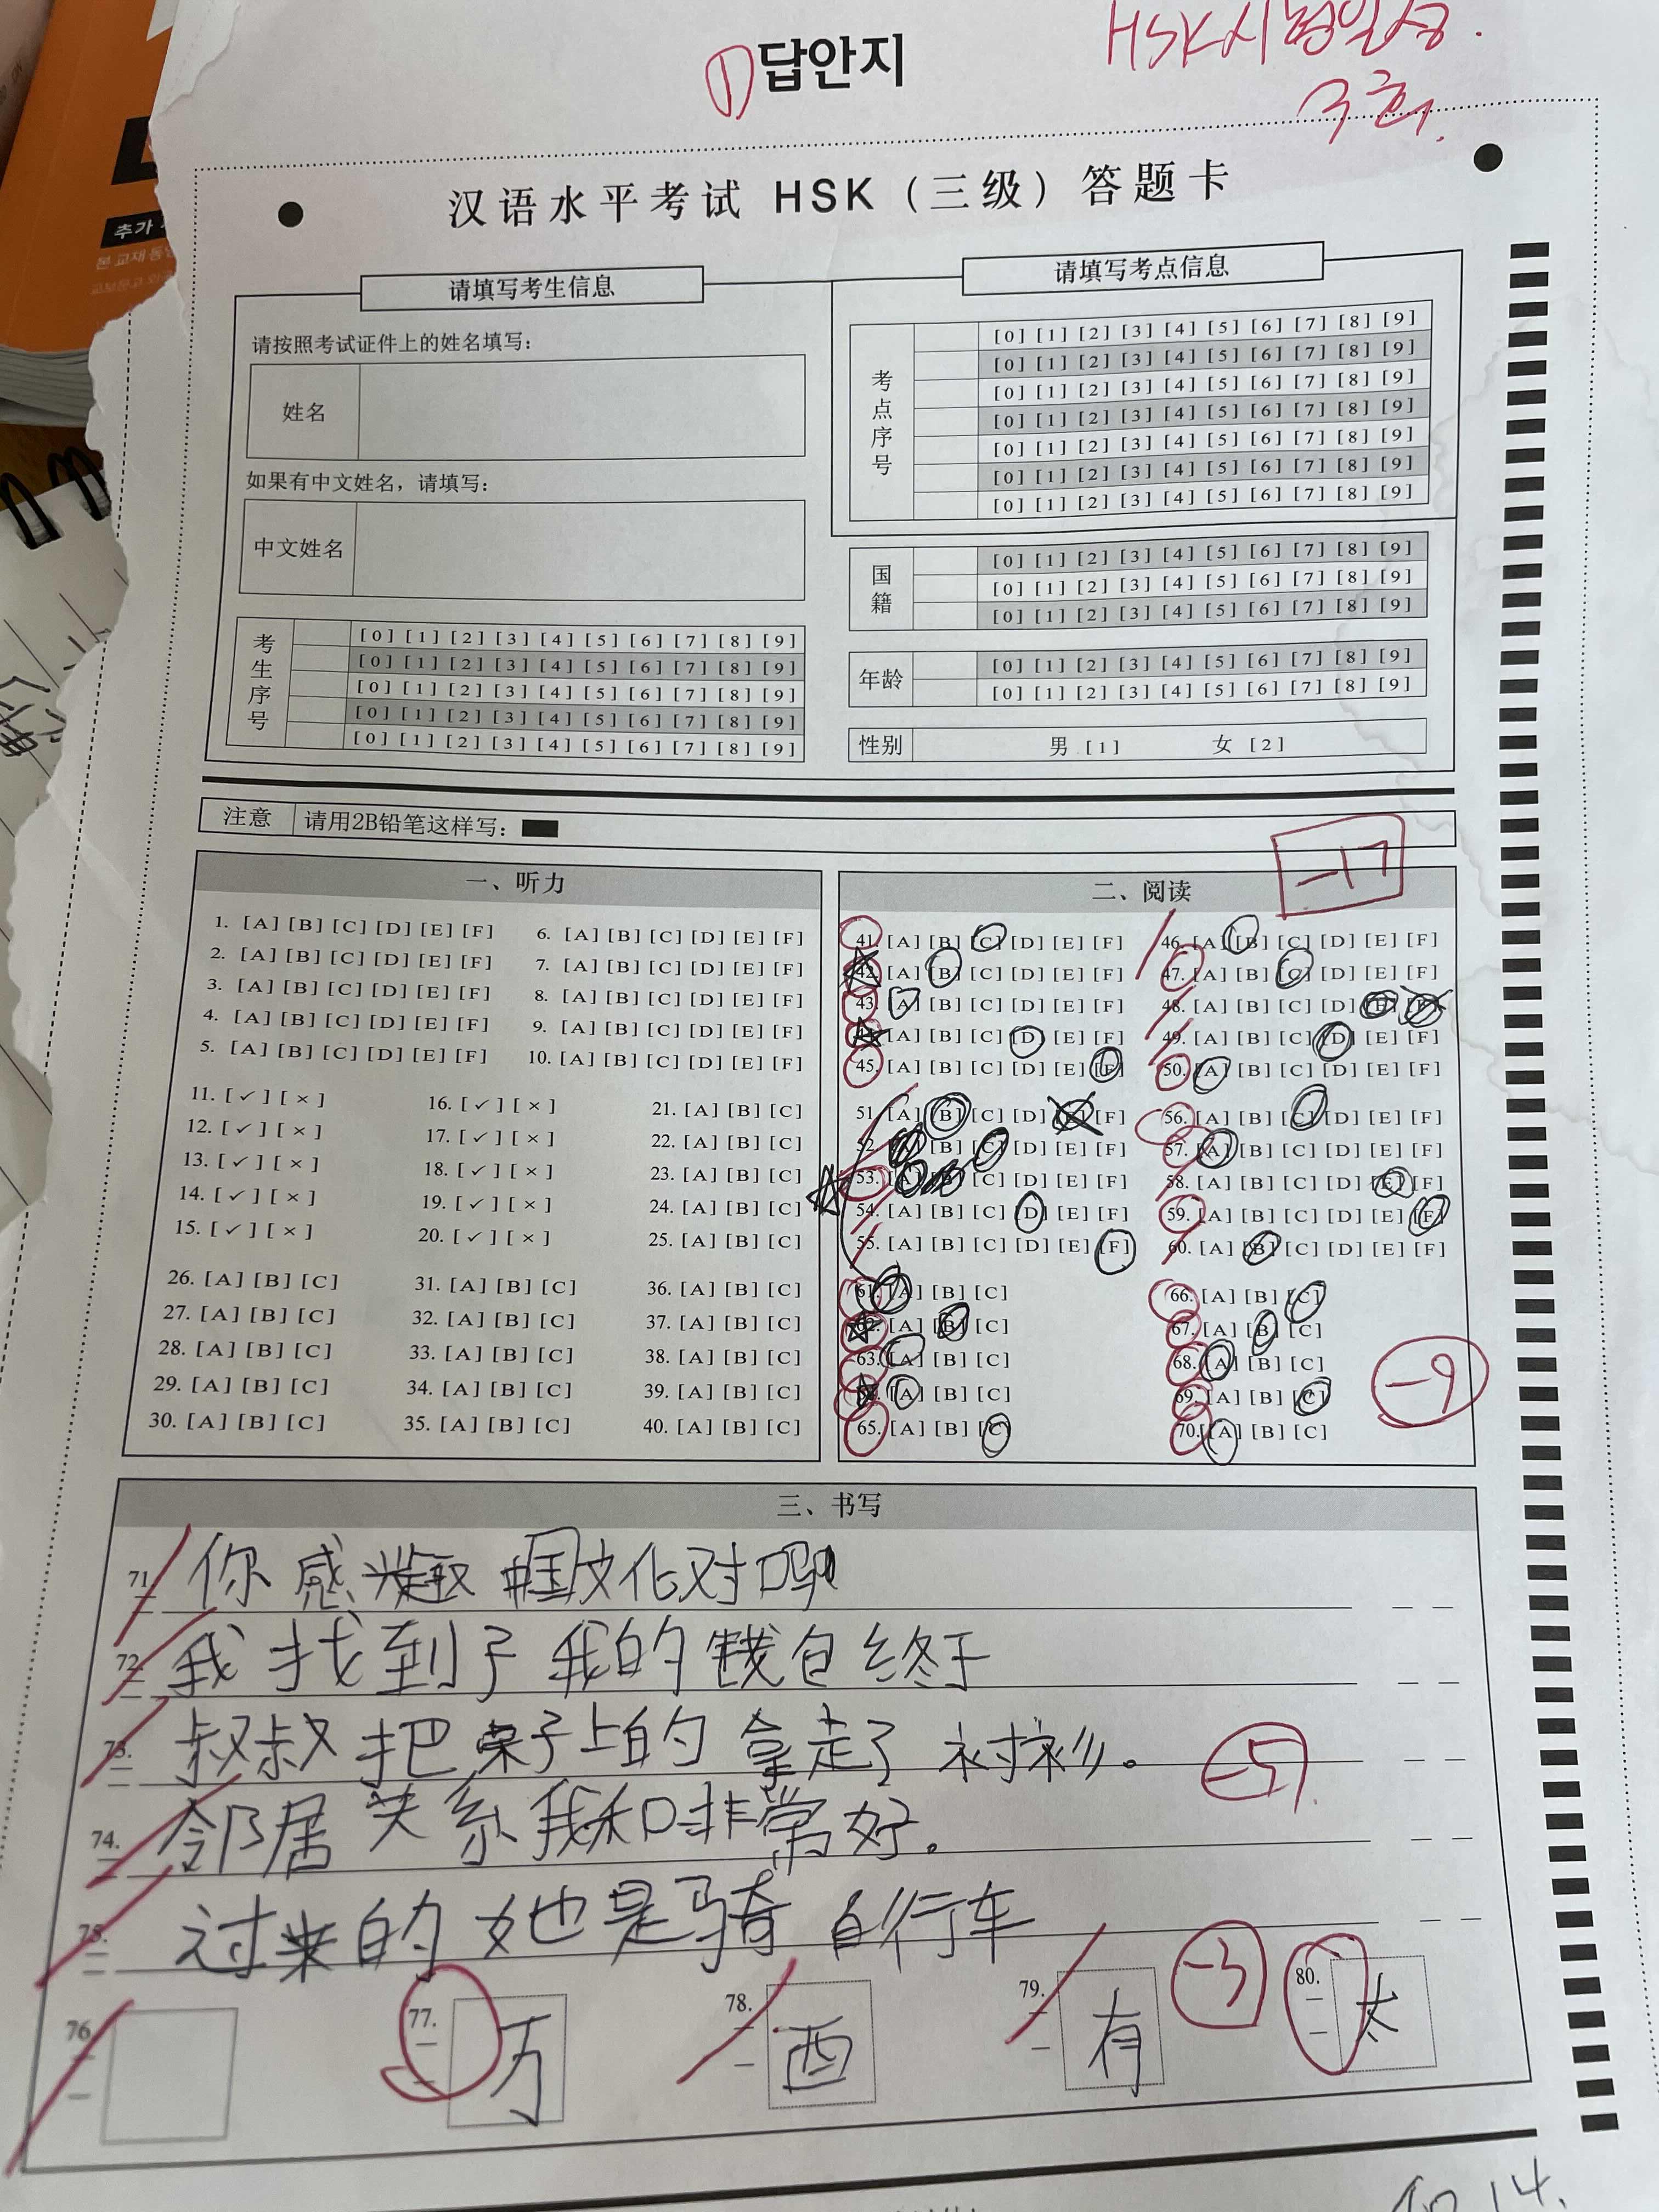 HSK시험일정.
구ㅎ.
① 답안지
汉语水平考试 HSK（三级）答题卡
请填写考生信息
请按照考试证件上的姓名填写：
姓名
如果有中文姓名，请填写：
中文姓名
考生序号
[0] [1] [2] [3] [4] [5] [6] [7] [8] [9]
[0] [1] [2] [3] [4] [5] [6] [7] [8] [9]
[0] [1] [2] [3] [4] [5] [6] [7] [8] [9]
[0] [1] [2] [3] [4] [5] [6] [7] [8] [9]
[0] [1] [2] [3] [4] [5] [6] [7] [8] [9]
请填写考点信息
考点序号
[0] [1] [2] [3] [4] [5] [6] [7] [8] [9]
[0] [1] [2] [3] [4] [5] [6] [7] [8] [9]
[0] [1] [2] [3] [4] [5] [6] [7] [8] [9]
[0] [1] [2] [3] [4] [5] [6] [7] [8] [9]
[0] [1] [2] [3] [4] [5] [6] [7] [8] [9]
[0] [1] [2] [3] [4] [5] [6] [7] [8] [9]
[0] [1] [2] [3] [4] [5] [6] [7] [8] [9]
国籍
[0] [1] [2] [3] [4] [5] [6] [7] [8] [9]
[0] [1] [2] [3] [4] [5] [6] [7] [8] [9]
[0] [1] [2] [3] [4] [5] [6] [7] [8] [9]
年龄
[0] [1] [2] [3] [4] [5] [6] [7] [8] [9]
[0] [1] [2] [3] [4] [5] [6] [7] [8] [9]
性别 男 [1] 女 [2]
注意 请用2B铅笔这样写：
一、听力
1. [A] [B] [C] [D] [E] [F] 6. [A] [B] [C] [D] [E] [F]
2. [A] [B] [C] [D] [E] [F] 7. [A] [B] [C] [D] [E] [F]
3. [A] [B] [C] [D] [E] [F] 8. [A] [B] [C] [D] [E] [F]
4. [A] [B] [C] [D] [E] [F] 9. [A] [B] [C] [D] [E] [F]
5. [A] [B] [C] [D] [E] [F] 10. [A] [B] [C] [D] [E] [F]
11. [✓] [×] 16. [✓] [×] 21. [A] [B] [C]
12. [✓] [×] 17. [✓] [×] 22. [A] [B] [C]
13. [✓] [×] 18. [✓] [×] 23. [A] [B] [C]
14. [✓] [×] 19. [✓] [×] 24. [A] [B] [C]
15. [✓] [×] 20. [✓] [×] 25. [A] [B] [C]
26. [A] [B] [C] 31. [A] [B] [C] 36. [A] [B] [C]
27. [A] [B] [C] 32. [A] [B] [C] 37. [A] [B] [C]
28. [A] [B] [C] 33. [A] [B] [C] 38. [A] [B] [C]
29. [A] [B] [C] 34. [A] [B] [C] 39. [A] [B] [C]
30. [A] [B] [C] 35. [A] [B] [C] 40. [A] [B] [C]
-17
二、阅读
41. [A] [B] [C] [D] [E] [F] 46. [A] [B] [C] [D] [E] [F]
42. [A] [B] [C] [D] [E] [F] 47. [A] [B] [C] [D] [E] [F]
43. [A] [B] [C] [D] [E] [F] 48. [A] [B] [C] [D] [E] [F]
[A] [B] [C] [D] [E] [F] 49. [A] [B] [C] [D] [E] [F]
45. [A] [B] [C] [D] [E] [F] 50. [A] [B] [C] [D] [E] [F]
51. [A] [B] [C] [D] [E] [F] 56. [A] [B] [C] [D] [E] [F]
52. [A] [B] [C] [D] [E] [F] 57. [A] [B] [C] [D] [E] [F]
53. [A] [B] [C] [D] [E] [F] 58. [A] [B] [C] [D] [E] [F]
54. [A] [B] [C] [D] [E] [F] 59. [A] [B] [C] [D] [E] [F]
55. [A] [B] [C] [D] [E] [F] 60. [A] [B] [C] [D] [E] [F]
61. [A] [B] [C] 66. [A] [B] [C]
62. [A] [B] [C] 67. [A] [B] [C]
63. [A] [B] [C] 68. [A] [B] [C]
[A] [B] [C] 69. [A] [B] [C]
65. [A] [B] [C] 70. [A] [B] [C]
-9
三、书写
71. 你 感兴趣 中国文化对吗
72. 我 找到了 我的 钱包 终于
73. 叔叔 把 桌子上的 拿走了 衬衫。
-5
74. 邻居 关系 我和 非常好。
75. 过来的 她 是 骑 自行车
76.
77. 万
78. 西
79. 有
-3
80. 太
추가
본 교재 동